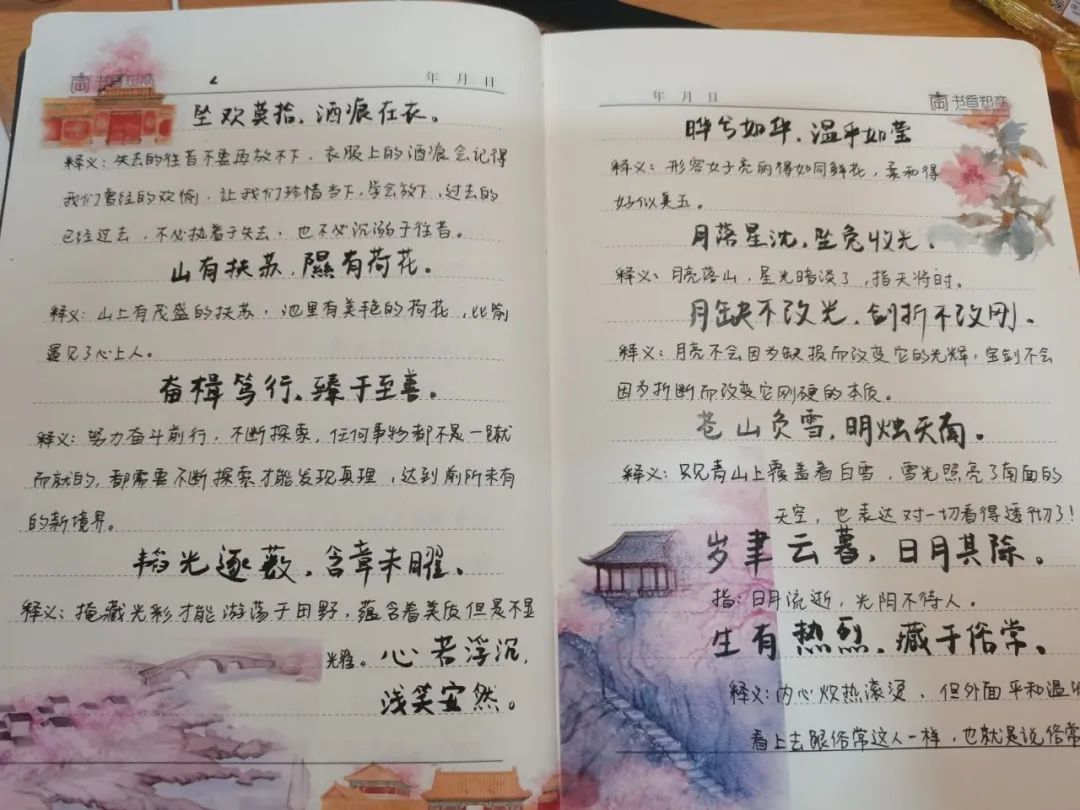 书香知商
年 月 日
坠欢莫拾,酒痕在衣。
释义:失去的往昔不要再放不下,衣服上的酒痕会记得
我们曾经的欢愉,让我们珍惜当下,学会放下,过去的
已经过去,不必执着于失去,也不必沉溺于往昔。
山有扶苏,隰有荷花。
释义:山上有茂盛的扶苏,池里有美艳的荷花,比喻
遇见了心上人。
奋楫笃行、臻于至善。
释义:努力奋斗前行,不断探索,任何事物都不是一蹴
而就的,都需要不断探索才能发现真理,达到前所未有
的新境界。
韬光逐薮,含章未曜。
释义:掩藏光彩才能游荡于田野,蕴含着美质但是不显
光耀。
心若浮沉,
浅笑安然。
年 月 日
晔兮如华,温乎如莹
释义:形容女子亮丽得如同鲜花,柔和得
好似美玉。
月落星沈,坠兔收光。
释义、月亮落山,星光暗淡了,指天将明。
月缺不改光,剑折不改刚。
释义:月亮不会因为缺损而改变它的光辉,宝剑不会
因为折断而改变它刚硬的本质。
苍山负雪,明烛天南。
释义:只见青山上覆盖着白雪,雪光照亮了南面的
天空,也表达对一切看得透彻了!
岁聿云暮,日月其除。
指:日月流逝,光阴不待人。
生有热烈,藏于俗常。
释义:内心炽热滚烫,但外面平和温
看上去跟俗常这人一样,也就是说俗常